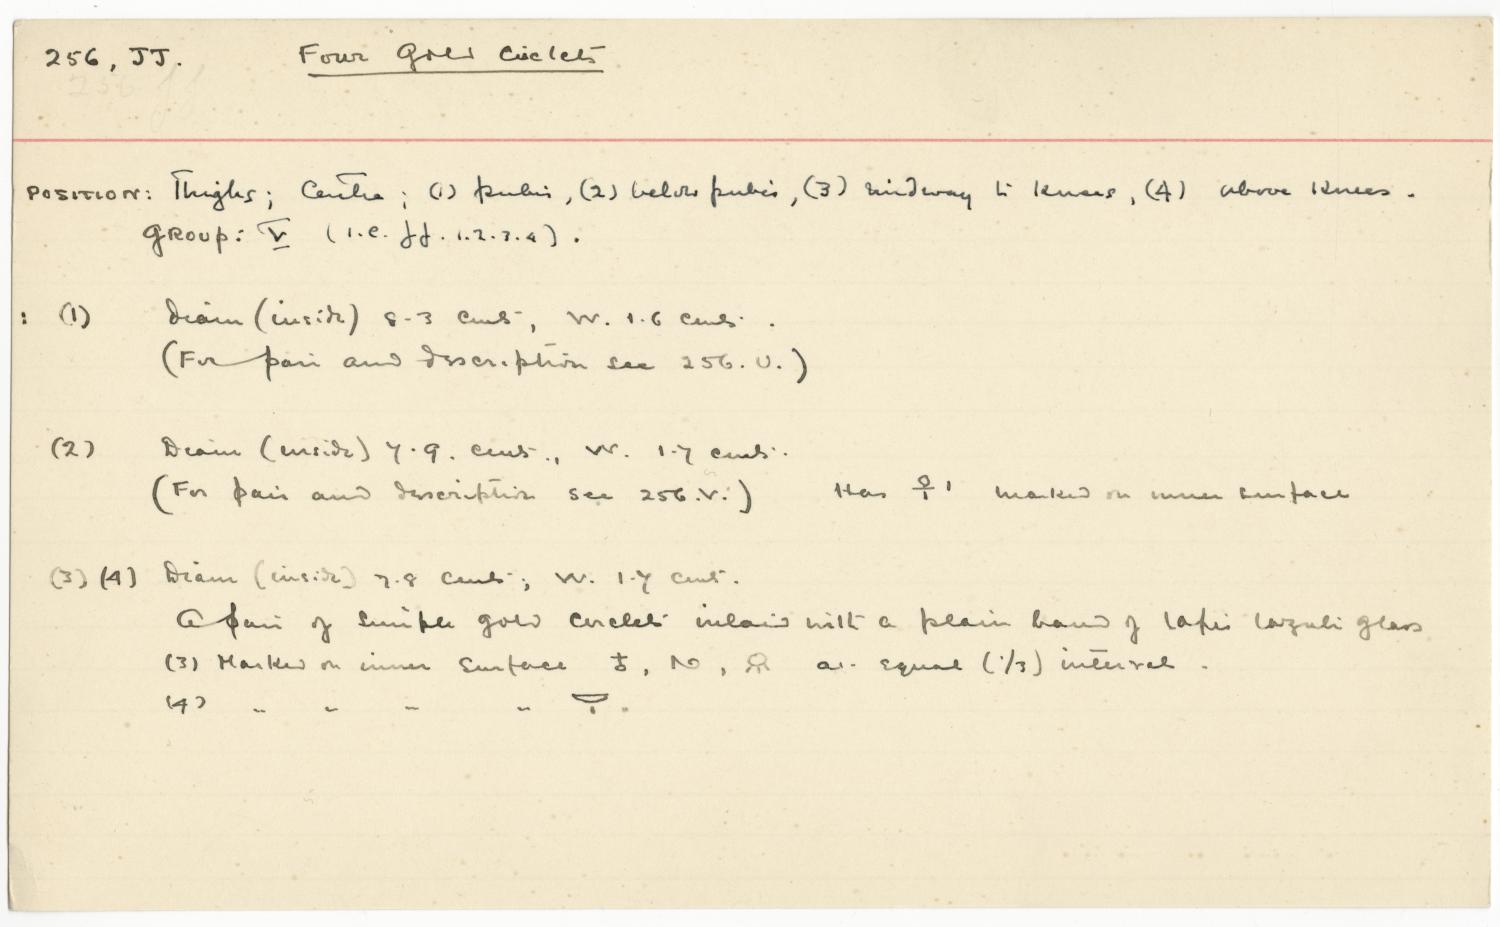 256, JJ. Four Gold Circlets
POSITION: Thighs; Centre; (1) pubis, (2) below pubis, (3) midway to knees, (4) above knees.
GROUP: V (i.e. JJ. 1.2.3.4).
(1) Diam (inside) 8.3 cents, W. 1.6 cents.
(For pair and description see 256. U.)
(2) Diam (inside) 7.9. cents., W. 1.7 cents.
(For pair and description see 256.V.) Has marked on inner surface
(3) (4) Diam (inside) 7.8 cents; W. 1.7 cent.
A pair of simple gold circlets inlaid with a plain band of lapis lazuli glass
(3) Marked on inner surface at equal (1/3) interval.
(4) " " " "